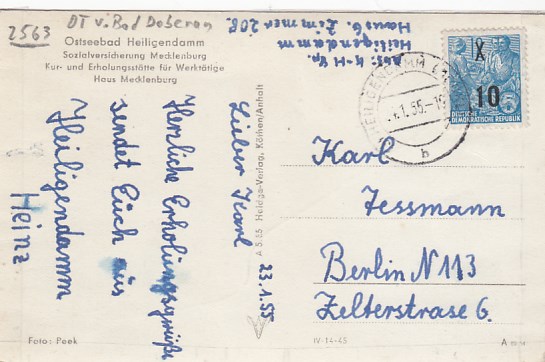 2563 DT v. Bad Doberan
Ostseebad Heiligendamm
Sozialversicherung Mecklenburg
Kur- und Erholungsstätte für Werktätige
Haus Mecklenburg
Lieber Karl
23.1.55
Herzliche Erholungsgrüße
sendet Euch aus
Heiligendamm
Heinz
Foto: Peek
A 5.55 Heldge-Verlag, Köthen/Anhalt
IV-14-45
Heiligendamm
Haus 6. Zimmer 208
HEILIGENDAMM
.1.55-1
b
X
10
DEUTSCHE
DEMOKRATISCHE REPUBLIK
Karl
Jessmann
Berlin N 113
Zelterstrase 6.
A